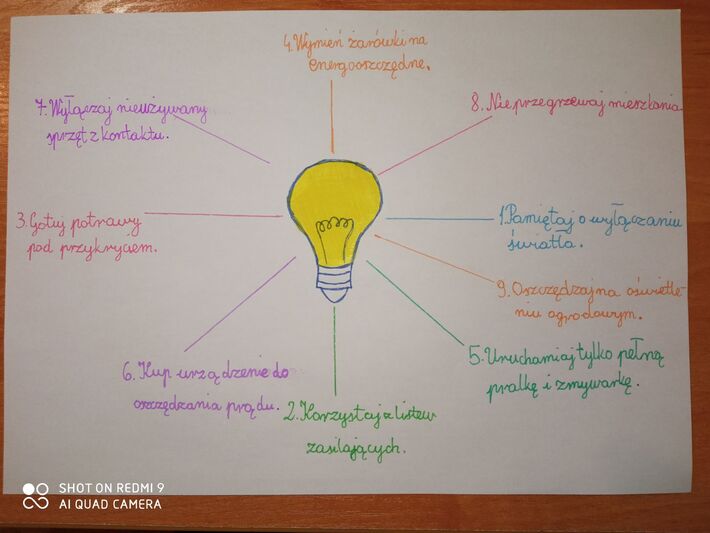 4. Wymień żarówki na
energooszczędne.
7. Wyłączaj nieużywany
sprzęt z kontaktu.
8. Nie przegrzewaj mieszkania
3. Gotuj potrawy
pod przykryciem.
1. Pamiętaj o wyłączaniu
światła.
9. Oszczędzaj na oświetle-
niu ogrodowym.
5. Uruchamiaj tylko pełną
pralkę i zmywarkę.
6. Kup urządzenie do
oszczędzania prądu.
2. Korzystaj z listew
zasilających.
SHOT ON REDMI 9
AI QUAD CAMERA